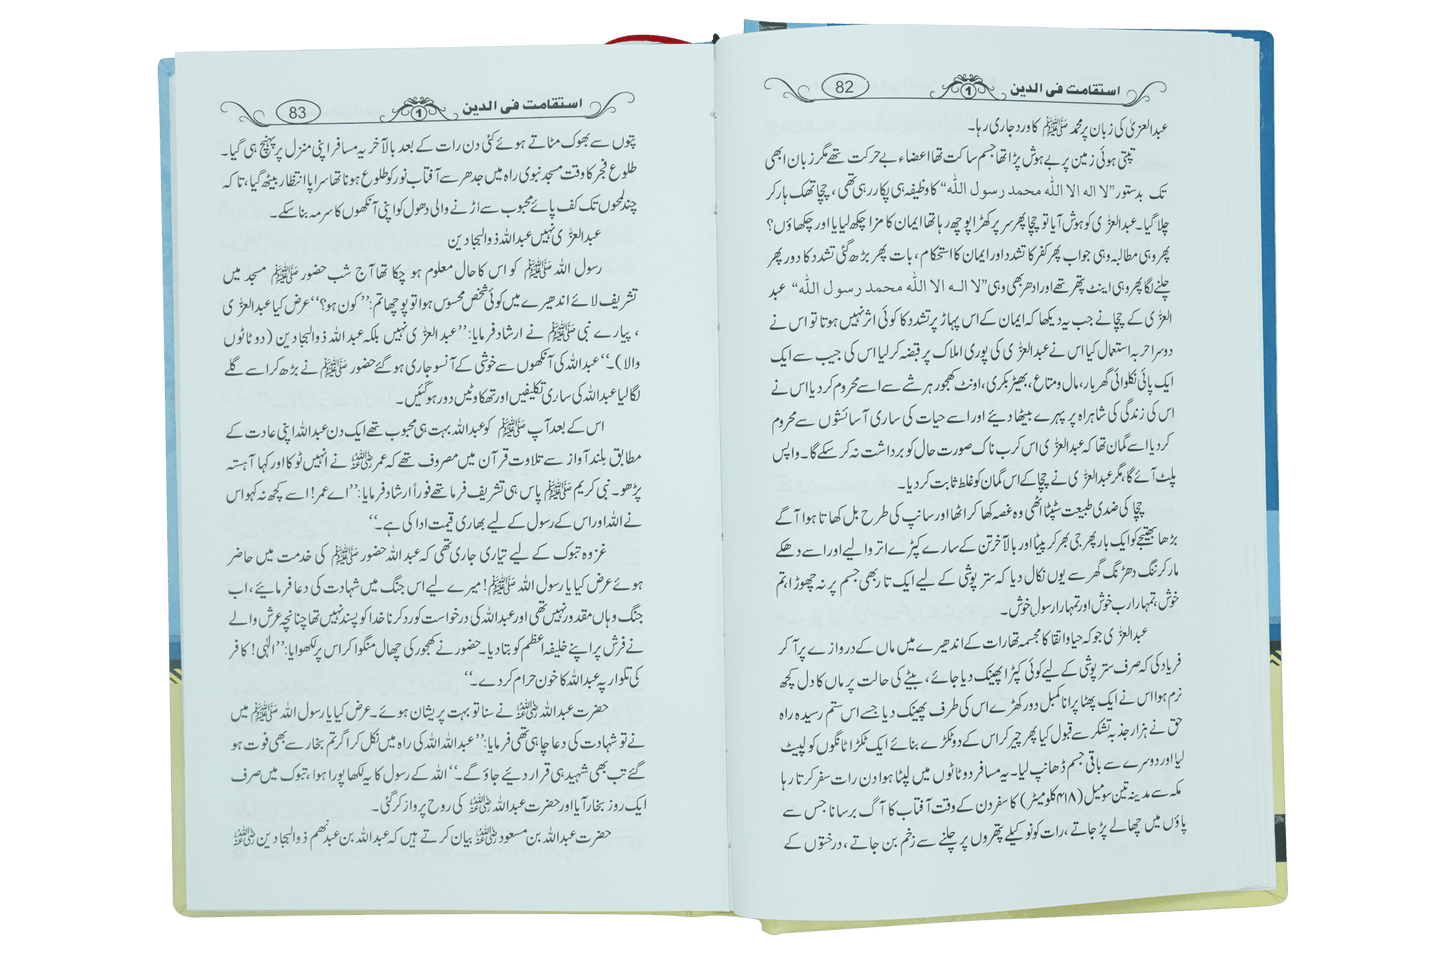 استقامت فی الدین 1 82
عبدالعزیٰ کی زبان پر محمد ﷺ کا ورد جاری رہا۔
تپتی ہوئی زمین پر بے ہوش پڑا تھا جسم ساکت تھا اعضاء بے حرکت تھے مگر زبان ابھی
تک بدستور ’’لا اله الا الله محمد رسول الله‘‘ کا وظیفہ ہی پکار رہی تھی، چچا تھک ہار کر
چلا گیا۔ عبدالعزّٰی کو ہوش آیا تو چچا پھر سر پر کھڑا پوچھ رہا تھا ایمان کا مزا چکھ لیا یا اور چکھاؤں؟
پھر وہی مطالبہ وہی جواب پھر کفر کا تشدد اور ایمان کا استحکام، بات پھر بڑھ گئی تشدد کا دور پھر
چلنے لگا پھر وہی اینٹ پتھر تھے اور ادھر بھی وہی ’’لا اله الا الله محمد رسول الله‘‘ عبد
العزّٰی کے چچا نے جب یہ دیکھا کہ ایمان کے اس پہاڑ پر تشدد کا کوئی اثر نہیں ہوتا تو اس نے
دوسرا حربہ استعمال کیا اس نے عبدالعزّٰی کی پوری املاک پر قبضہ کر لیا اس کی جیب سے ایک
ایک پائی نکلوائی گھر بار، مال و متاع، بھیڑ بکری، اونٹ کھجور ہر شے سے اسے محروم کر دیا اس نے
اس کی زندگی کی شاہراہ پر پہرے بیٹھا دیئے اور اسے حیات کی ساری آسائشوں سے محروم
کر دیا اسے گمان تھا کہ عبدالعزّٰی اس کرب ناک صورت حال کو برداشت نہ کر سکے گا۔ واپس
پلٹ آئے گا، مگر عبدالعزّٰی نے چچا کے اس گمان کو غلط ثابت کر دیا۔
چچا کی ضدی طبیعت سٹپٹا اٹھی وہ غصہ کھا کر اٹھا اور سانپ کی طرح بل کھاتا ہوا آگے
بڑھا بھتیجے کو ایک بار پھر جی بھر کر پیٹا اور بالآخر تن کے سارے کپڑے اتروا لیے اور اسے دھکے
مار کر ننگ دھڑنگ گھر سے یوں نکال دیا کہ ستر پوشی کے لیے ایک تار بھی جسم پر نہ چھوڑا، تم
خوش، تمہارا رب خوش اور تمہارا رسول خوش۔
عبدالعزّٰی جو کہ حیا و اتقا کا مجسمہ تھا رات کے اندھیرے میں ماں کے دروازے پر آ کر
فریاد کی کہ صرف ستر پوشی کے لیے کوئی کپڑا پھینک دیا جائے، بیٹے کی حالت پر ماں کا دل کچھ
نرم ہوا اس نے ایک پھٹا پرانا کمبل دور کھڑے اس کی طرف پھینک دیا جسے اس ستم رسیدہ راہ
حق نے ہزار جذبہ تشکر سے قبول کیا پھر چیر کر اس کے دو ٹکڑے بنائے ایک ٹکڑا ٹانگوں کو لپیٹ
لیا اور دوسرے سے باقی جسم ڈھانپ لیا۔ یہ مسافر دو ٹاٹوں میں لپٹا ہوا دن رات سفر کرتا رہا
مکہ سے مدینہ تین سو میل (۴۱۸ کلومیٹر) کا سفر دن کے وقت آفتاب کا آگ برسانا جس سے
پاؤں میں چھالے پڑ جاتے، رات کو نوکیلے پتھروں پر چلنے سے زخم بن جاتے، درختوں کے
استقامت فی الدین 1 83
پتوں سے بھوک مٹاتے ہوئے کئی دن رات کے بعد بالآخر یہ مسافر اپنی منزل پر پہنچ ہی گیا۔
طلوع فجر کا وقت مسجد نبوی راہ میں جدھر سے آفتاب نور کو طلوع ہونا تھا سراپا انتظار بیٹھ گیا، تا کہ
چند لمحوں تک کف پائے محبوب سے اڑنے والی دھول کو اپنی آنکھوں کا سرمہ بنا سکے۔
عبدالعزّٰی نہیں عبداللہ ذوالبجادین
رسول اللہ ﷺ کو اس کا حال معلوم ہو چکا تھا آج شب حضور ﷺ مسجد میں
تشریف لائے اندھیرے میں کوئی شخص محسوس ہوا تو پوچھا تم: ’’کون ہو؟‘‘ عرض کیا عبدالعزّٰی
، پیارے نبی ﷺ نے ارشاد فرمایا: ’’عبدالعزّٰی نہیں بلکہ عبداللہ ذوالبجادین (دو ٹاٹوں
والا)۔‘‘ عبداللہ کی آنکھوں سے خوشی کے آنسو جاری ہو گئے حضور ﷺ نے بڑھ کر اسے گلے
لگا لیا عبداللہ کی ساری تکلیفیں اور تھکاوٹیں دور ہو گئیں۔
اس کے بعد آپ ﷺ کو عبداللہ بہت ہی محبوب تھے ایک دن عبداللہ اپنی عادت کے
مطابق بلند آواز سے تلاوت قرآن میں مصروف تھے کہ عمر رضی اللہ عنہ نے انہیں ٹوکا اور کہا آہستہ
پڑھو۔ نبی کریم ﷺ پاس ہی تشریف فرما تھے فوراً ارشاد فرمایا: ’’اے عمر! اسے کچھ نہ کہو اس
نے اللہ اور اس کے رسول کے لیے بھاری قیمت ادا کی ہے۔‘‘
غزوہ تبوک کے لیے تیاری جاری تھی کہ عبداللہ حضور ﷺ کی خدمت میں حاضر
ہوئے عرض کیا یا رسول اللہ ﷺ! میرے لیے اس جنگ میں شہادت کی دعا فرمایئے، اب
جنگ وہاں مقدور نہیں تھی اور عبداللہ کی درخواست کو رد کرنا خدا کو پسند نہیں تھا چنانچہ عرش والے
نے فرش پر اپنے خلیفہ اعظم کو بتا دیا۔ حضور نے کھجور کی چھال منگوا کر اس پر لکھوایا: ’’الٰہی! کافر
کی تلوار پہ عبداللہ کا خون حرام کر دے۔‘‘
حضرت عبداللہ رضی اللہ عنہ نے سنا تو بہت پریشان ہوئے۔ عرض کیا یا رسول اللہ ﷺ میں
نے تو شہادت کی دعا چاہی تھی فرمایا: ’’عبداللہ اللہ کی راہ میں نکل کر اگر تم بخار سے بھی فوت ہو
گئے تب بھی شہید ہی قرار دیئے جاؤ گے۔‘‘ اللہ کے رسول کا یہ لکھا پورا ہوا، تبوک میں صرف
ایک روز بخار آیا اور حضرت عبداللہ رضی اللہ عنہ کی روح پرواز کر گئی۔
حضرت عبداللہ بن مسعود رضی اللہ عنہ بیان کرتے ہیں کہ عبداللہ بن عبدنھم ذوالبجادین رضی اللہ عنہ